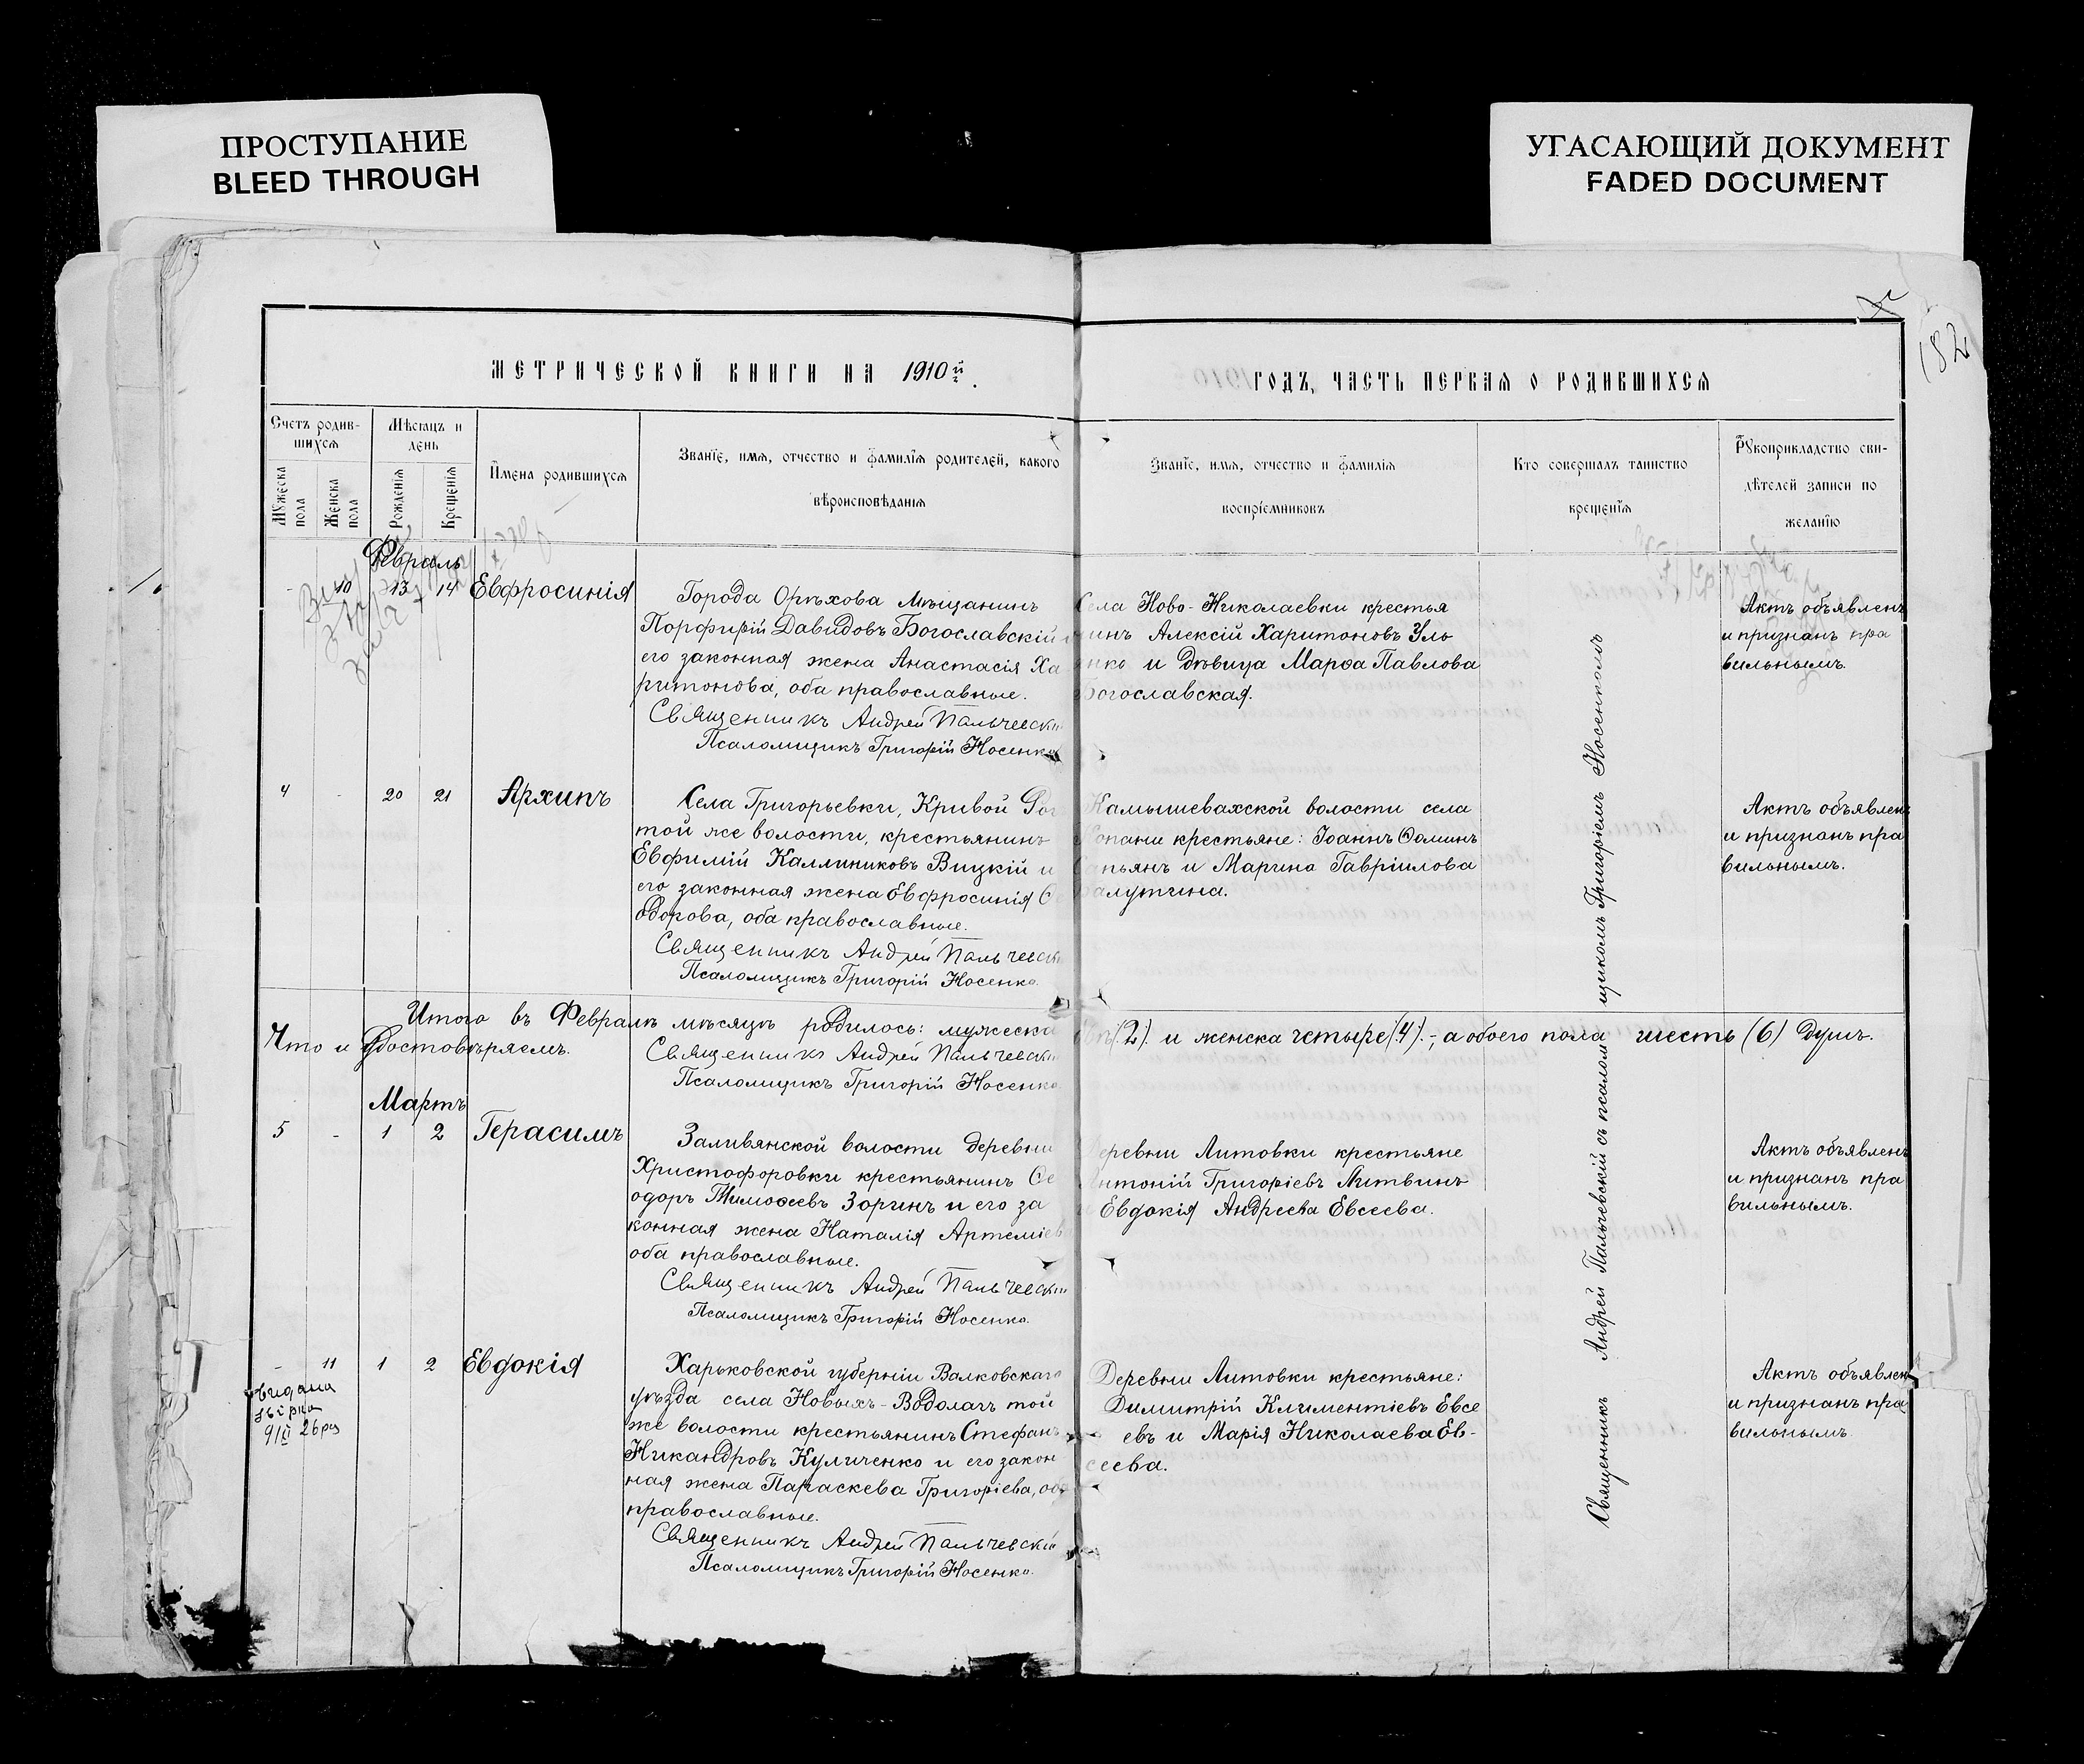 ПРОСТУПАНИЕ
BLEED THROUGH
УГАСАЮЩИЙ ДОКУМЕНТ
FADED DOCUMENT
182
МЕТРИЧЕСКОЙ КНИГИ НА 1910й
ГОДЪ, ЧАСТЬ ПЕРВАЯ О РОДИВШИХСЯ
Счетъ родив-
шихся
Мужеска пола
Женска пола
Мѣсяцъ и
день
Рожденія
Крещенія
Имена родившихся
Званіе, имя, отчество и фамилія родителей, какого
вѣроисповѣданія
Званіе, имя, отчество и фамилія
воспріемниковъ
Кто совершалъ таинство
крещенія
Рукоприкладство сви-
дѣтелей записи по
желанію
Февраль
- 10 13 14 Евфросинія
Города Орѣхова мѣщанинъ
Порфирій Давидовъ Богославскій и
его законная жена Анастасія Ха
ритонова, оба православные.
Священникъ Андрей Пальчевскі
Псаломщикъ Григорій Носенко
Села Ново-Николаевки крестья
нинъ Алексій Харитоновъ Уль
янко и дѣвица Марѳа Павлова
Богославская.
Актъ объявленъ
и признанъ пра
вильнымъ.
4 - 20 21 Архипъ
Села Григорьевки, Кривой Рог
той же волости, крестьянинъ
Евфимій Каллиниковъ Вицкій и
его законная жена Евфросинія Ѳ
одорова, оба православные.
Священникъ Андрей Пальчевскі
Псаломщикъ Григорій Носенко.
Камышевахской волости села
Копани крестьяне: Іоаннъ Ѳоминъ
и Марина Гавріилова
Актъ объявленъ
и признанъ пра
вильнымъ.
Итого въ Февралѣ мѣсяцѣ родилось: мужеска
(2) и женска четыре (4).-, а обоего пола шесть (6) душъ.
Что и удостовѣряемъ.
Священникъ Андрей Пальчевскі
Псаломщикъ Григорій Носенко
Мартъ
5 - 1 2 Герасимъ
Заливянской волости деревни
Христофоровки крестьянинъ Ѳе
одоръ Тимоѳеевъ Зоринъ и его за
конная жена Наталія Артеміев
оба православные.
Священникъ Андрей Пальчевскі
Псаломщикъ Григорій Носенко.
Деревни Литовки крестьяне
Антоній Григоріевъ Литвинъ
и Евдокія Андреева Евсеева.
Актъ объявленъ
и признанъ пра
вильнымъ.
- 11 1 2 Евдокія
Харьковской губерніи Валковскаго
уѣзда села Новыхъ-Водолагъ той
же волости крестьянинъ Стефанъ
Никандровъ Куличенко и его закон
ная жена Параскева Григоріева, оба
православные.
Священникъ Андрей Пальчевскій
Псаломщикъ Григорій Носенко.
Деревни Литовки крестьяне:
Димитрій Климентіевъ Евсе
евъ и Марія Николаева Ев-
сеева.
Актъ объявленъ
и признанъ пра
вильнымъ.
Священникъ Андрей Пальчевскій съ псаломщикомъ Григоріемъ Носенкомъ